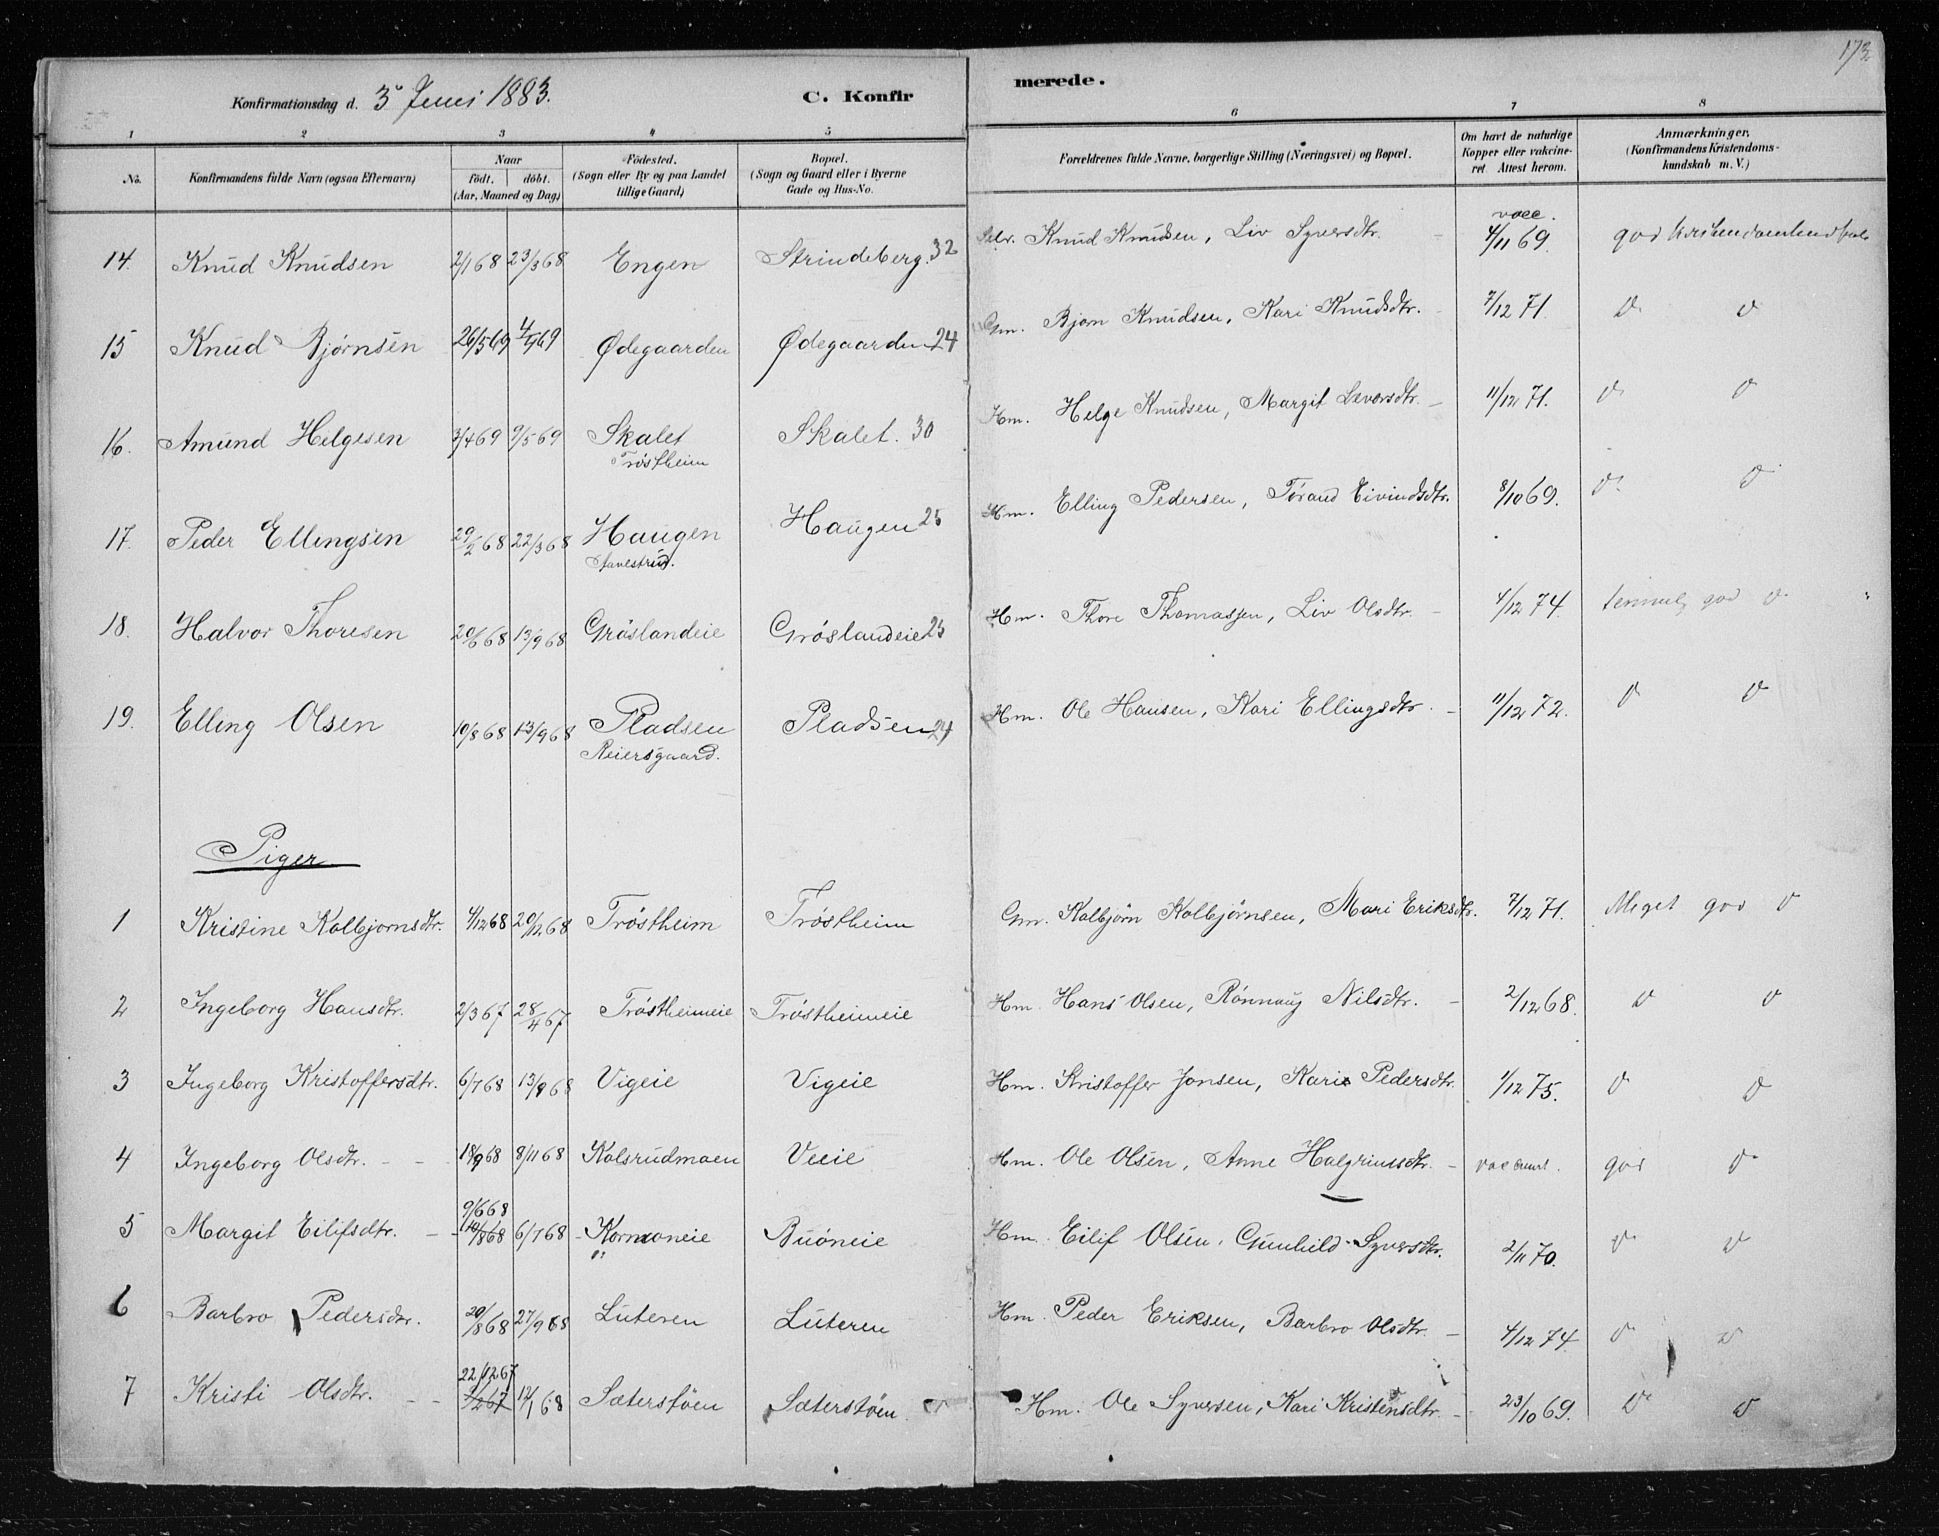 173
Konfirmationsdag d. 3 Juni 1883. C. Konfirmerede.
1 2 3 4 5 6 7 8
No. Konfirmandens fulde Navn (ogsaa Efternavn) Naar födt. döbt. (Aar, Maaned og Dag) Födested. (Sogn eller By og paa Landet tillige Gaard) Bopæl. (Sogn og Gaard eller i Byerne Gade og Hus-No. Forældrenes fulde Navne, borgerlige Stilling (Næringsvei) og Bopæl. Om havt de naturlige Kopper eller vakcineret Attest herom. Anmærkninger. (Konfirmandens Kristendomskundskab m. V.)
14. Knud Knudsen 2/1 68 23/3 68 Engen Strindeberg. 32 Selv. Knud Knudsen, Liv Syversdtr. vacc. 4/11 69. god
15 Knud Bjørnsen 26/5 69 4/7 69 Ødegaarden Ødegaarden 24 Gm. Bjørn Knudsen, Kari Knudsdtr. 7/12 71. D D
16. Amund Helgesen 3/4 69 9/5 69 Skalet Trøstheim Skalet. 30 Hm. Helge Knudsen, Margit 11/12 71. D D
17. Peder Ellingsen 29/2 68 22/3 68 Haugen Haugen 25 Hm. Elling Pedersen, Tørand Eivindsdtr. 8/10 69. D D
18. Halvor Thoresen 20/6 68 13/9 68 Grøslandeie Grøslandeie 25 Hm. Thore Thomassen, Liv Olsdtr. 4/12 74. temmel. god D
19. Elling Olsen 10/8 68 13/9 68 Pladsen Reiersgaard. Pladsen 24 Hm. Ole Hansen, Kari Ellingsdtr. 11/12 72. D D
Piger
1 Kristine Kolbjornsdtr. 4/12 68 20/12 68 Trøstheim Trøstheim Gm. Kolbjørn Kolbjørnsen, Mari Eriksdtr. 7/12 71. Meget god D
2 Ingeborg Hansdtr. 2/3 67 28/4 67 Trøstheimeie Trøstheimeie Hm. Hans Olsen, Rønnaug Nilsdtr. 2/12 68. D D
3 Ingeborg Kristoffersdtr. 6/7 68 13/9 68 Vigeie Vigeie Hm. Kristoffer Jonsen, Kari Pedersdtr. 1/12 75. D D
4 Ingeborg Olsdtr. 18/9 68 8/11 68 Kolsrudmoen Veeie Hm. Ole Olsen, Anne Halgrimsdtr. god D
5 Margit Eilifsdtr. 9/6 68 10/8 68 6/7 68 Buóneie Hm. Eilif Olsen. Gunhild Syversdtr. 2/11 70. D D
6 Barbro Pedersdtr. 20/8 68 27/9 68 Luteren Luteren Hm. Peder Eriksen, Barbro Olsdtr. 4/12 74 D D
7 Kristi Olsdtr. 22/12 67 12/1 68 Sæterstøen Sæterstøen. Hm. Ole Syversen, Kari Kristensdtr. 23/10 69. D D